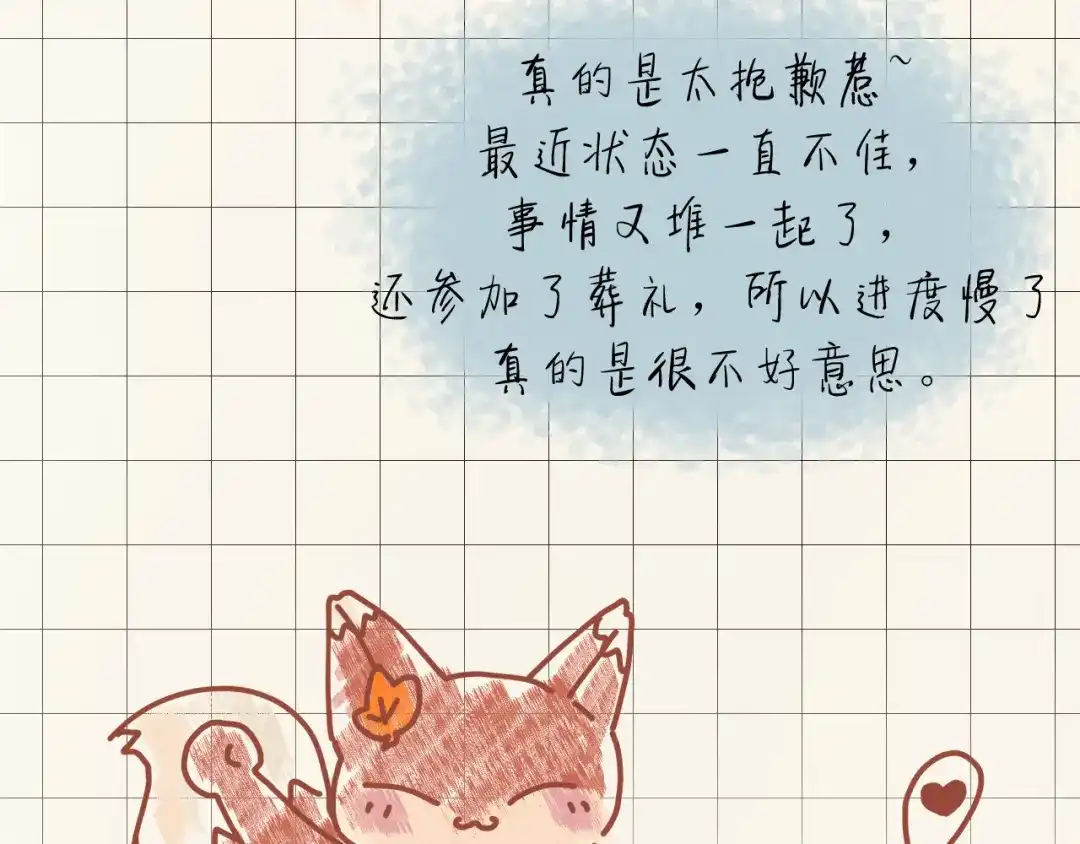 真的是太抱歉惹~
最近状态一直不佳,
事情又堆一起了,
还参加了葬礼,所以进度慢了
真的是很不好意思。